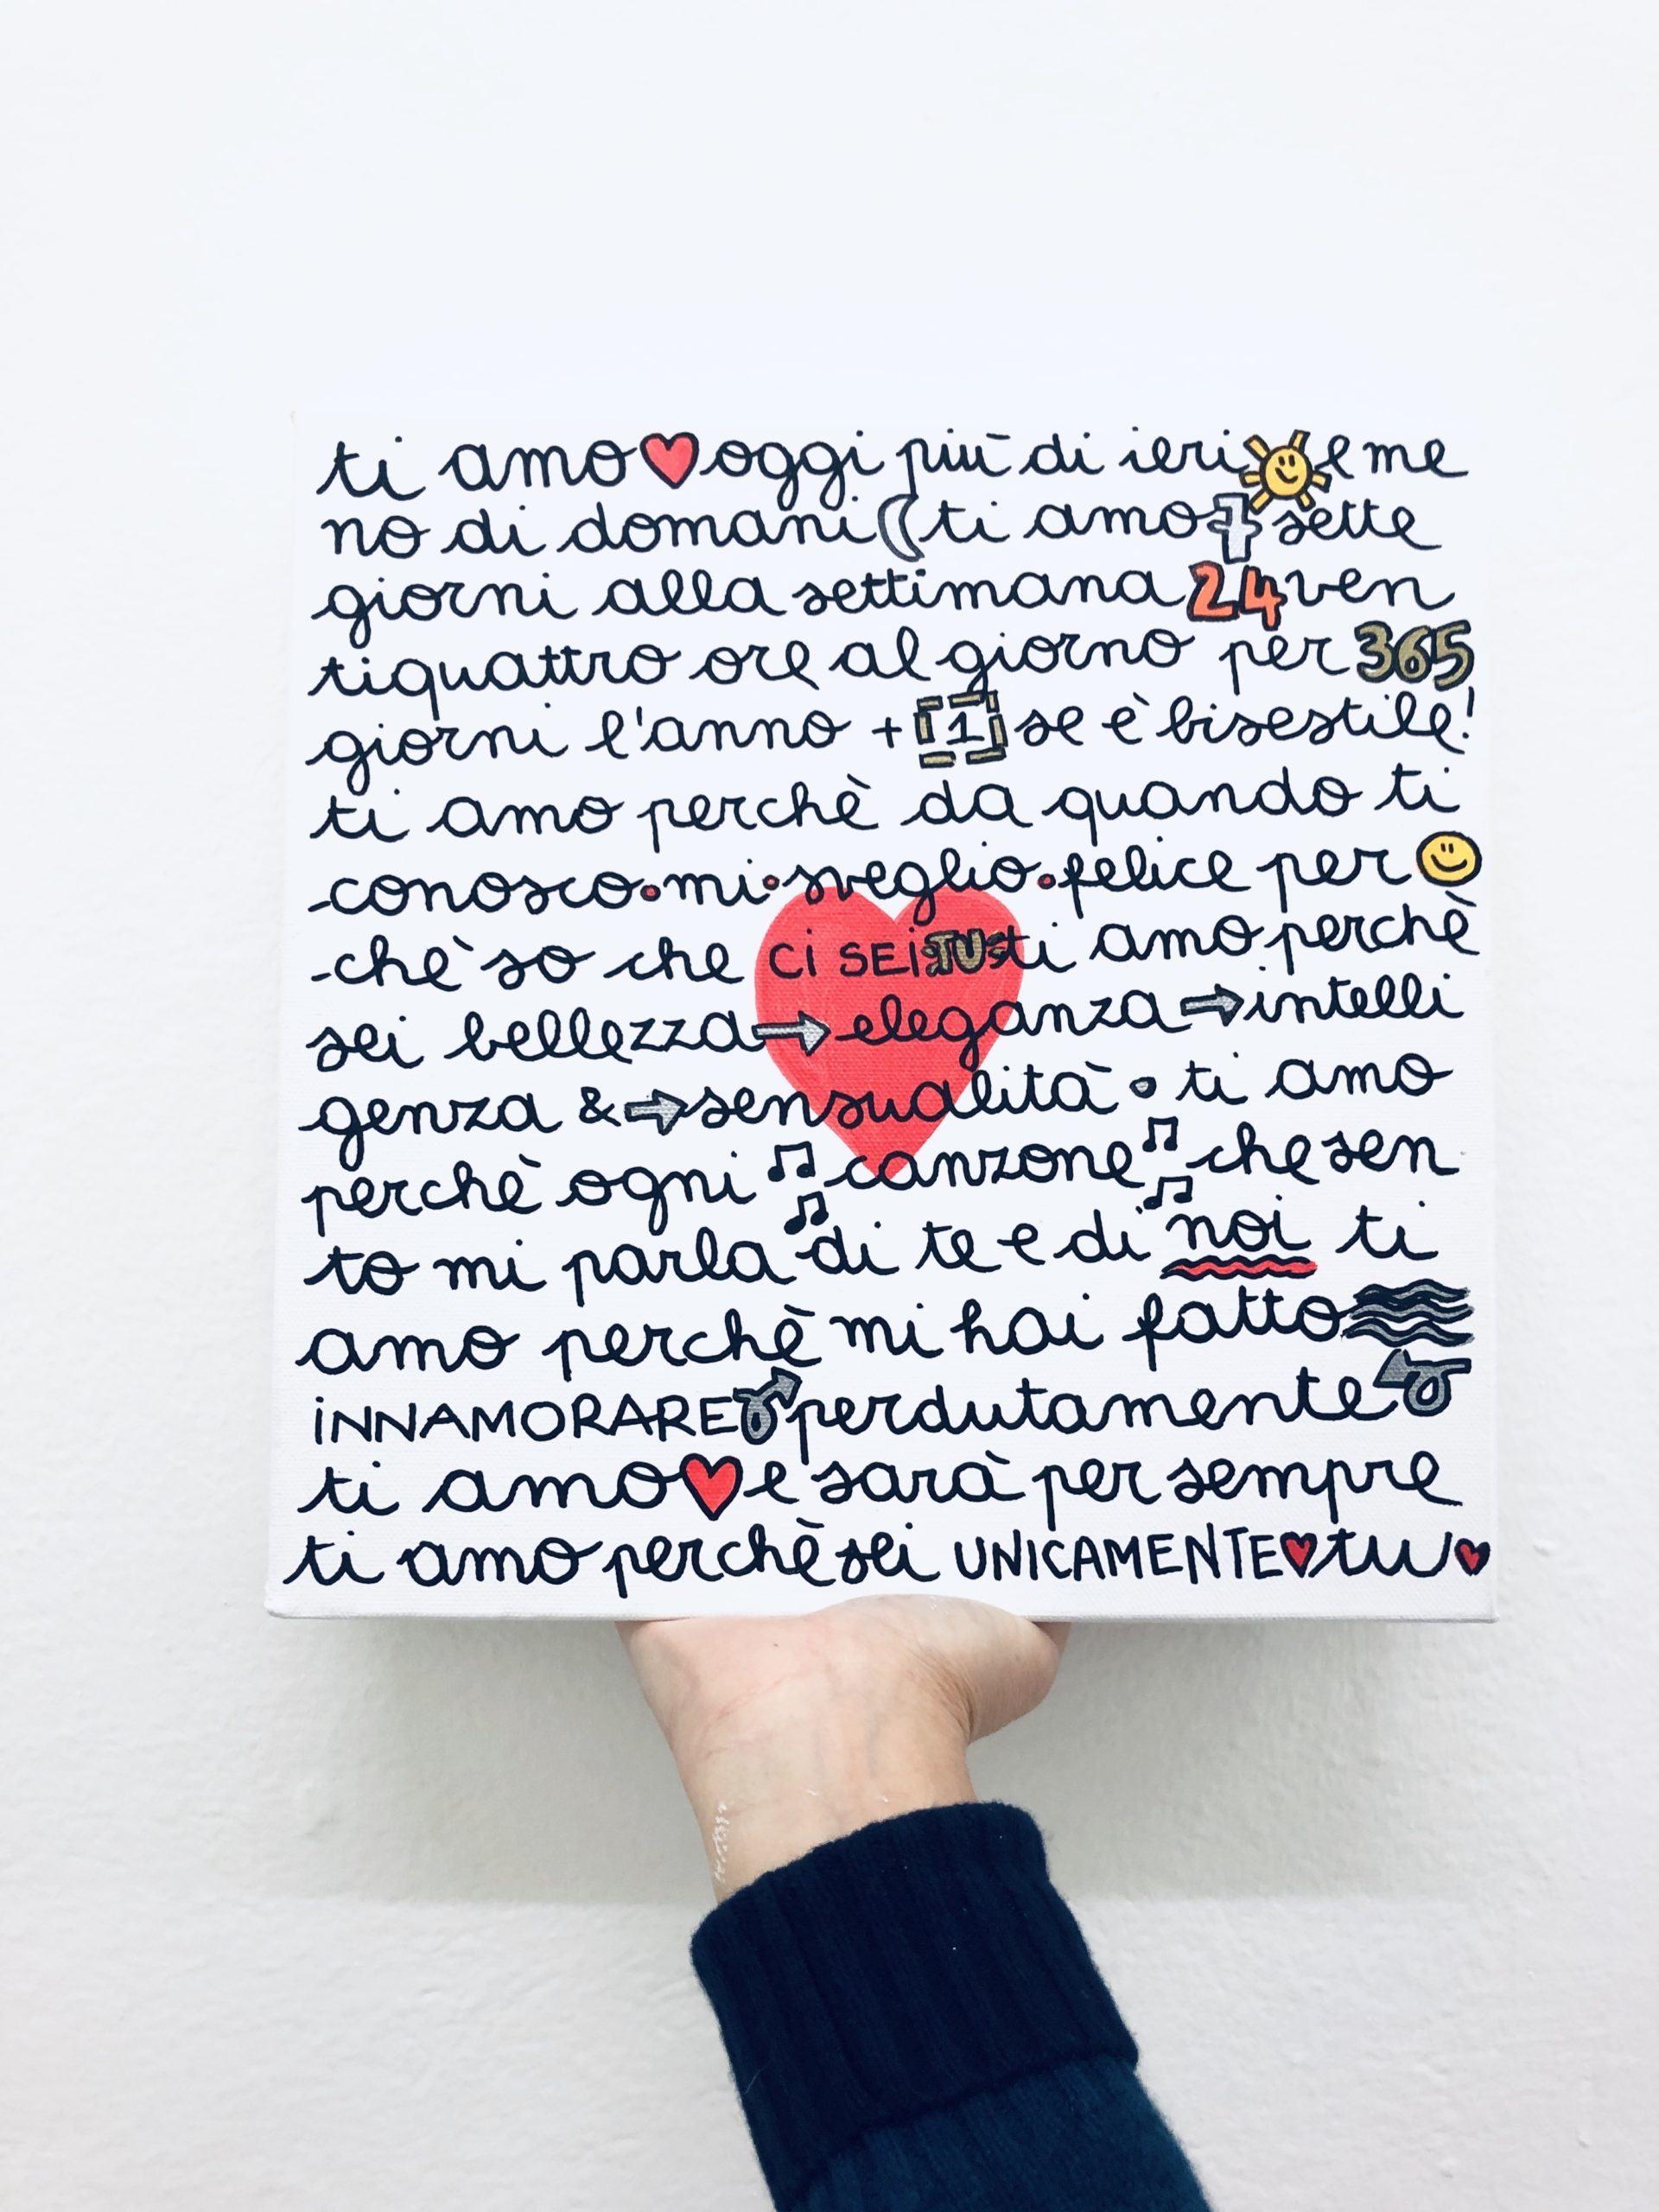 ti amo oggi più di ieri e me
no di domani ti amo 7 sette
giorni alla settimana 24 ven
tiquattro ore al giorno per 365
giorni l'anno + 1 se è bisestile!
ti amo perchè da quando ti
conosco • mi • sveglio • felice per
chè so che Ci SEi TU ti amo perchè
sei bellezza → eleganza → intelli
genza & → sensualità • ti amo
perchè ogni canzone che sen
to mi parla di te e di noi ti
amo perchè mi hai fatto
iNNAMORARE perdutamente
ti amo e sarà per sempre
ti amo perchè sei UNICAMENTE tu